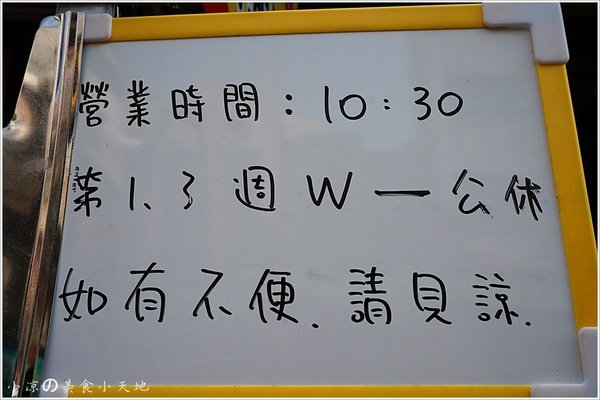 營業時間：10：30
第1、3週W一公休
如有不便、請見諒.
小涼の美食小天地